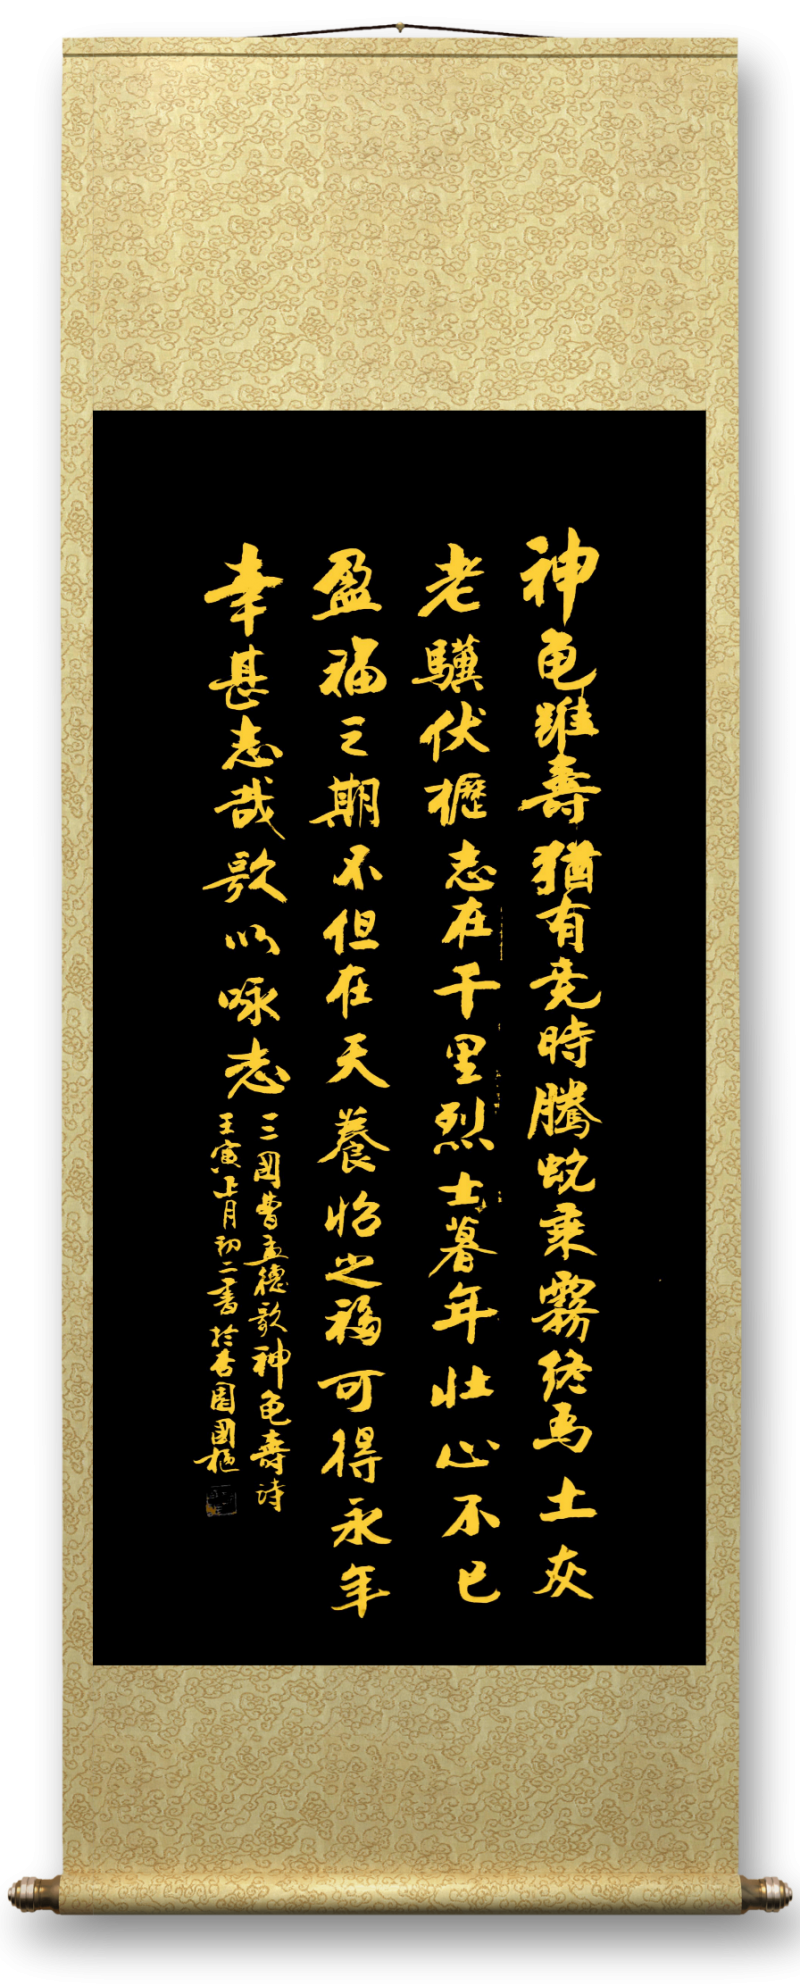 神龟雖壽猶有竟時騰蛇乘霧終為土灰
老驥伏櫪志在千里烈士暮年壯心不已
盈福之期不但在天養怡之福可得永年
幸甚志哉歌以咏志
三國曹孟德歌神龟壽诗
壬寅正月初二書於杏園國